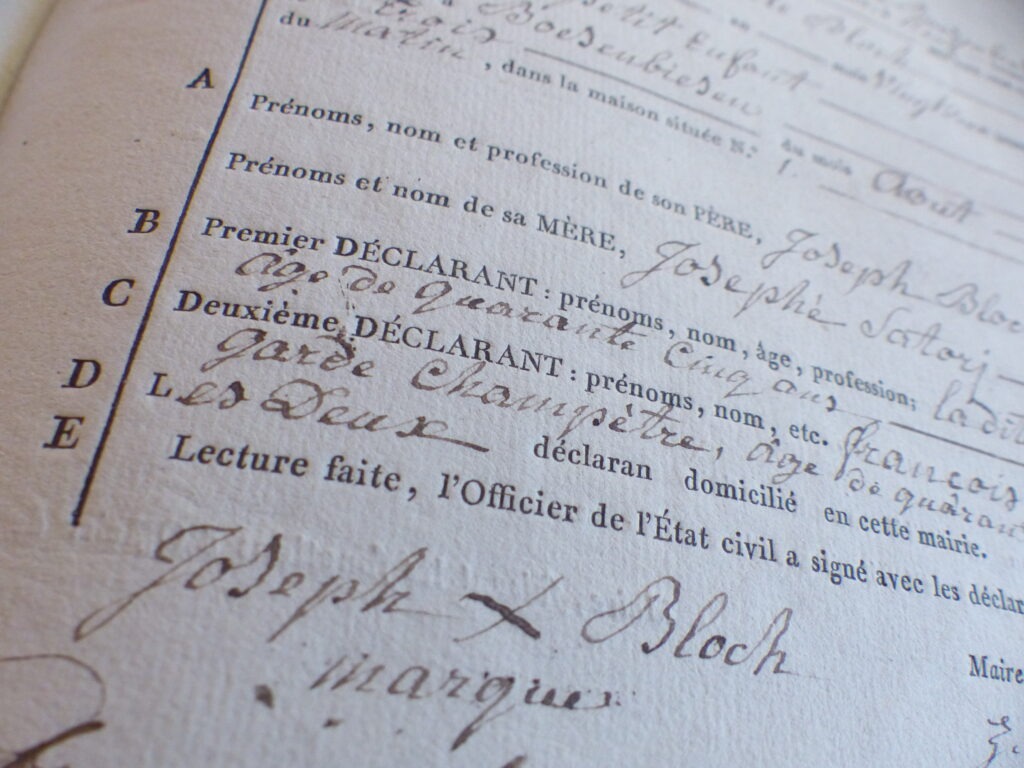 petit Enfant
trois à Boesenbiesen
du matin, dans la maison située N.º 1. du mois Aout
A Prénoms, nom et profession de son PÈRE, Joseph Bloc
Prénoms et nom de sa MÈRE, Josephè Satorj
B Premier DÉCLARANT : prénoms, nom, âge, profession; ladit
âge de quarante Cinq ans
C Deuxième DÉCLARANT : prénoms, nom, etc. françois
garde Champêtre, âge de quaran
D Les Deux déclaran domicilié en cette mairie.
E Lecture faite, l'Officier de l'État civil a signé avec les déclar
Joseph X Bloch
marque
Maire